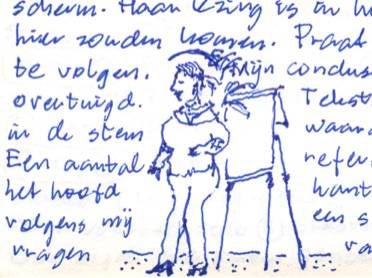 scherm. Haar lezing is in h
hier zouden komen. Praat
te volgen. Mijn conclus
overtuigd. Tekst
in de stem waara
Een aantal refer
het hoofd hant
volgens mij een s
vragen va